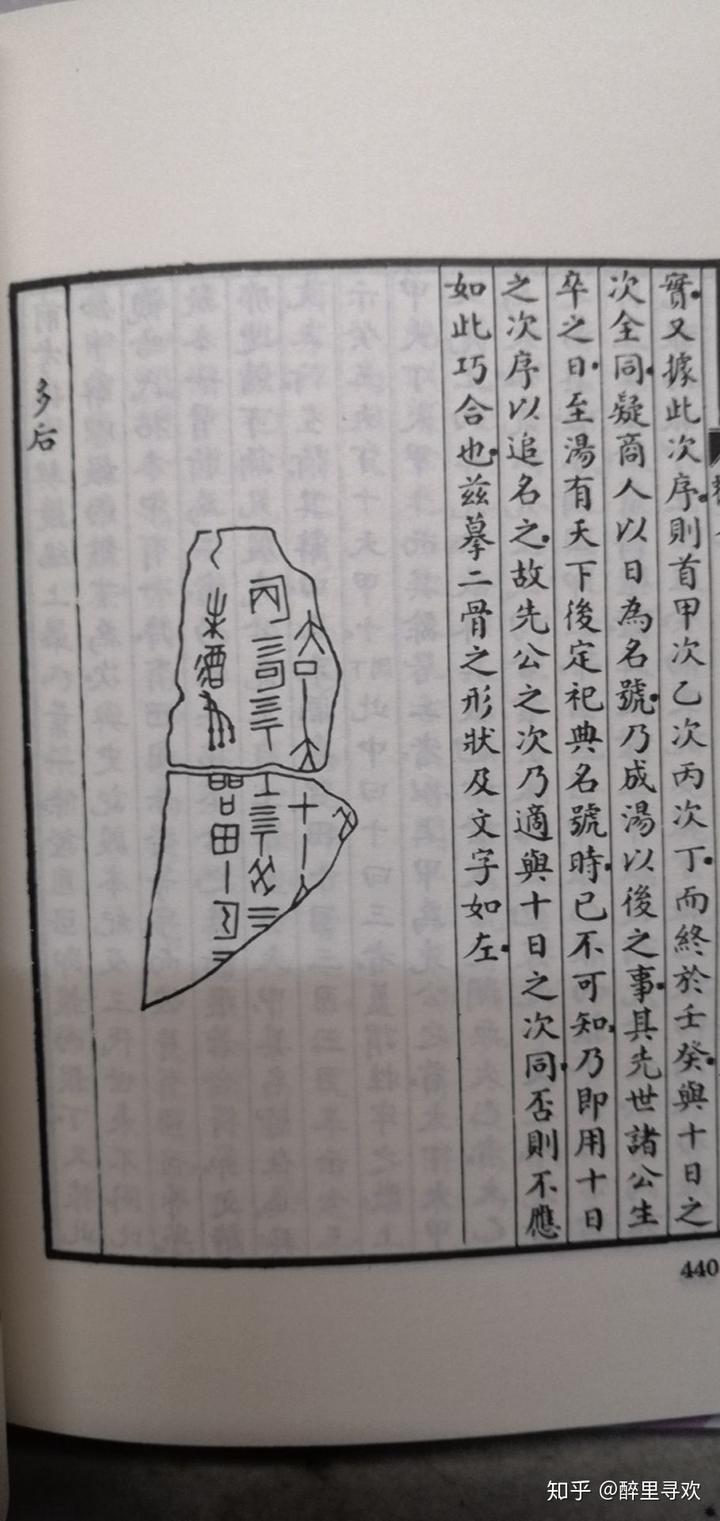 實又據此次序則首甲次乙次丙次丁而終於壬癸與十日之
次全同疑商人以日為名號乃成湯以後之事其先世諸公生
卒之日至湯有天下後定祀典名號時已不可知乃即用十日
之次序以追名之故先公之次乃適與十日之次同否則不應
如此巧合也茲摹二骨之形狀及文字如左
多后
440
知乎 @醉里寻欢